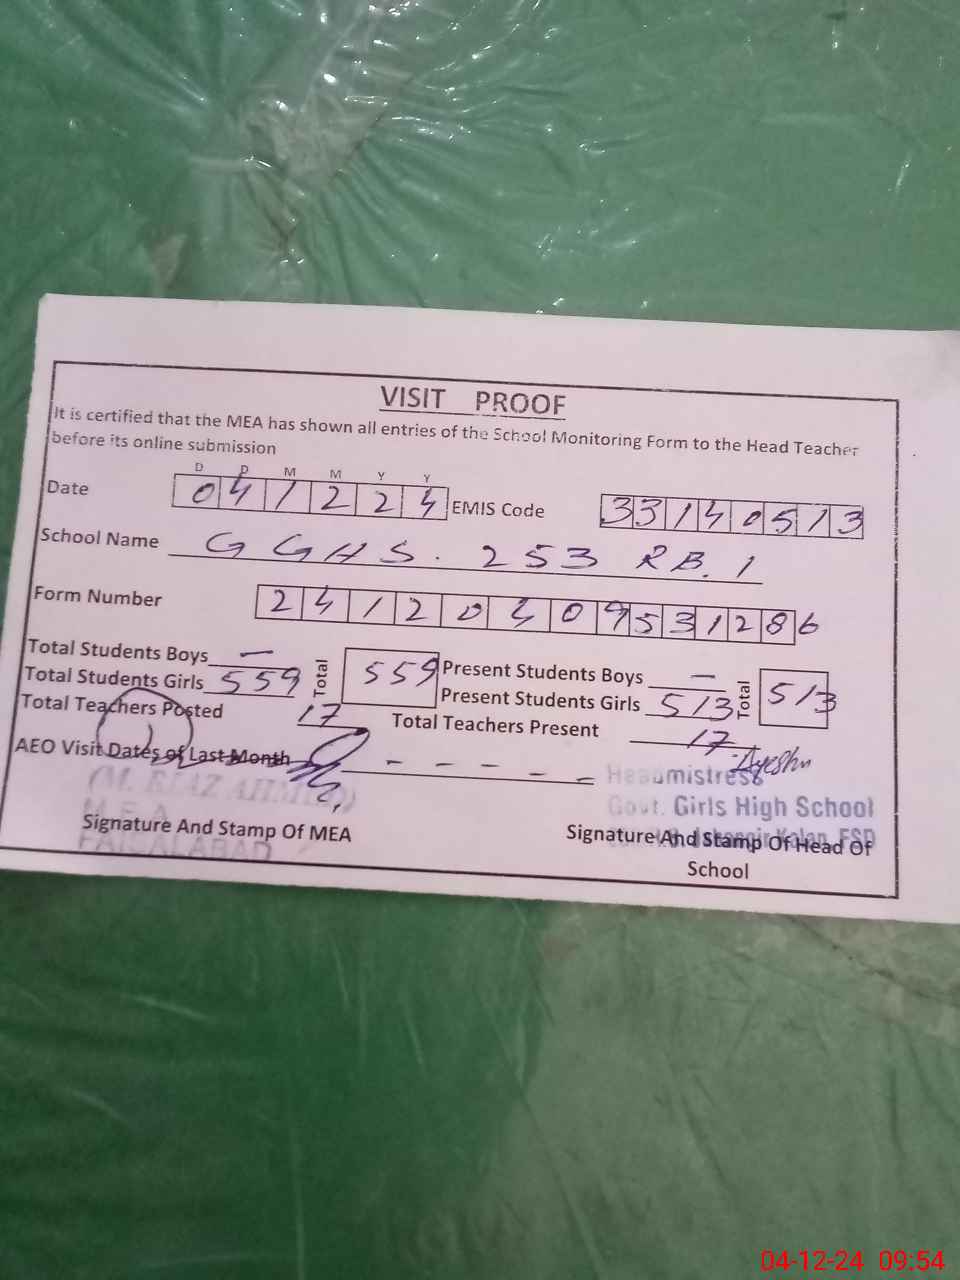 VISIT PROOF
It is certified that the MEA has shown all entries of the School Monitoring Form to the Head Teacher
before its online submission
D D M M Y Y
Date 041224 EMIS Code 33140513
School Name GGHS. 253 RB. 1
Form Number 24120409531286
Total Students Boys — Total 559 Present Students Boys — Total 513
Total Students Girls 559 Present Students Girls 513
Total Teachers Posted 17 Total Teachers Present 17
AEO Visit Dates of Last Month – – – – –
Ayesha
(M. RIAZ AHMED)
M.E.A
FAISALABAD
Signature And Stamp Of MEA
Headmistress
Govt. Girls High School
Kalan, FSD
Signature And Stamp Of Head Of
School
04-12-24 09:54